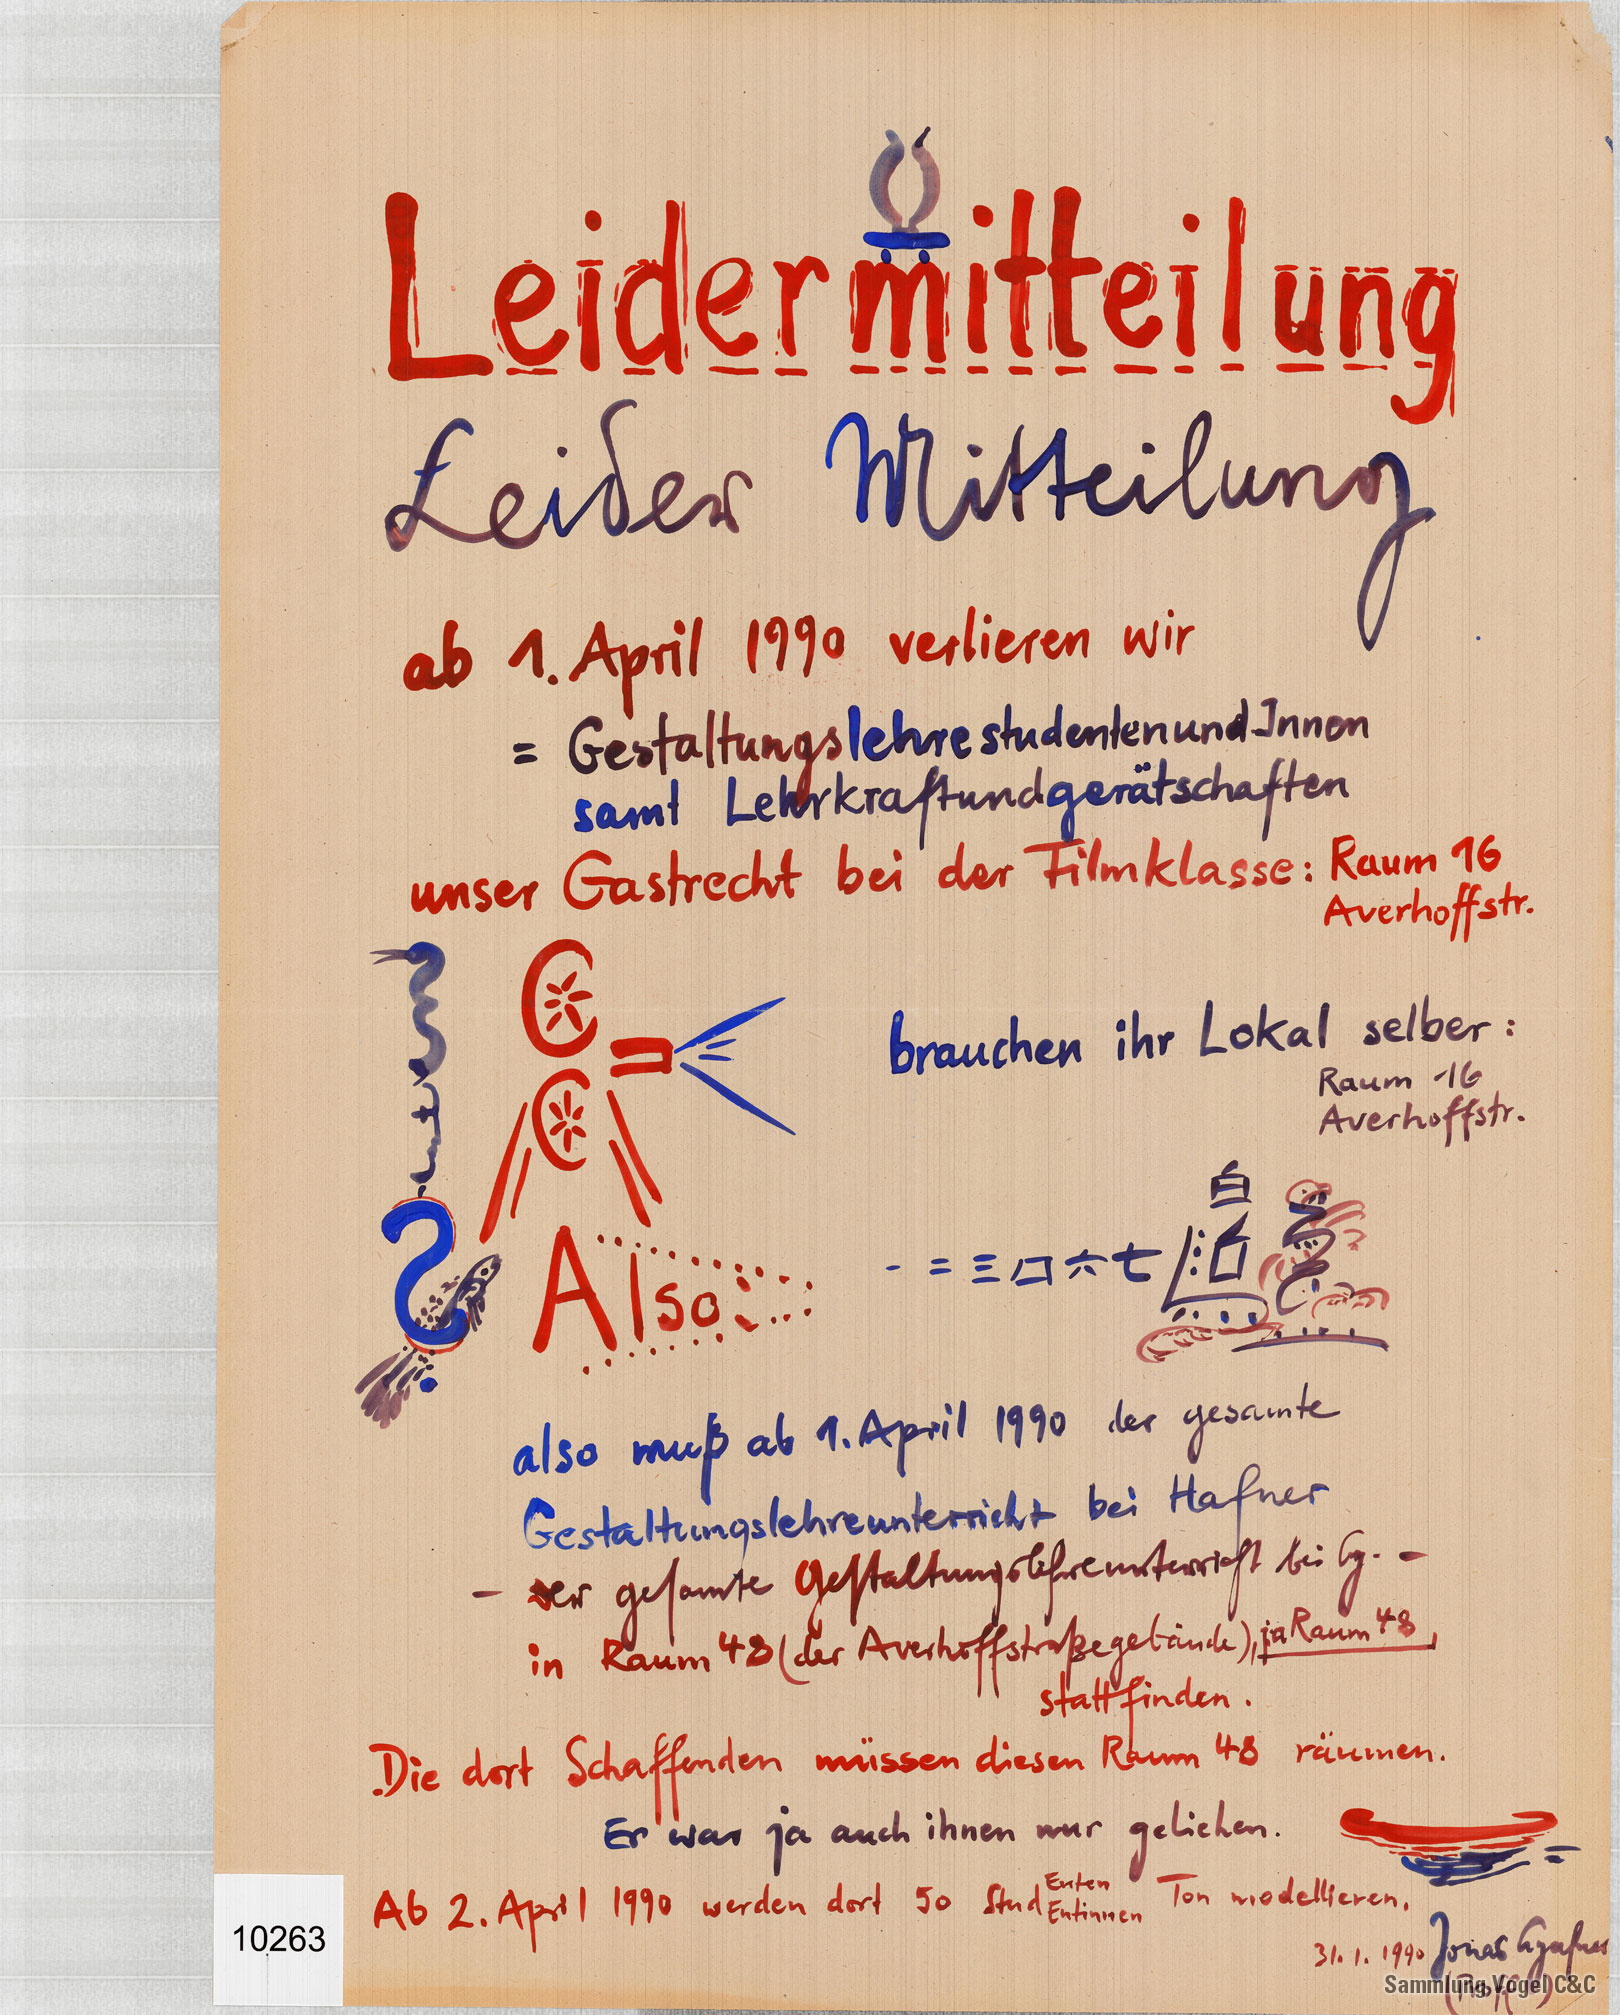 Leidermitteilung
Leider Mitteilung
ab 1. April 1990 verlieren wir
= GestaltungslehrestudentenundInnen
samt Lehrkraftundgerätschaften
unser Gastrecht bei der Filmklasse: Raum 16
Averhoffstr.
brauchen ihr Lokal selber:
Raum 16
Averhoffstr.
Also:
- = 三 口 六 七
also muß ab 1. April 1990 der gesamte
Gestaltungslehreunterricht bei Hafner
- der gesamte Gestaltungslehreunterricht bei Cg. -
in Raum 48 (der Averhoffstraßegebäude), ja Raum 48,
stattfinden.
Die dort Schaffenden müssen diesen Raum 48 räumen.
Er war ja auch ihnen nur geliehen.
Ab 2. April 1990 werden dort 50 Stud Enten Entinnen Ton modellieren.
31.1.1990 Jonas Hafner
10263
Sammlung Vogel C&C